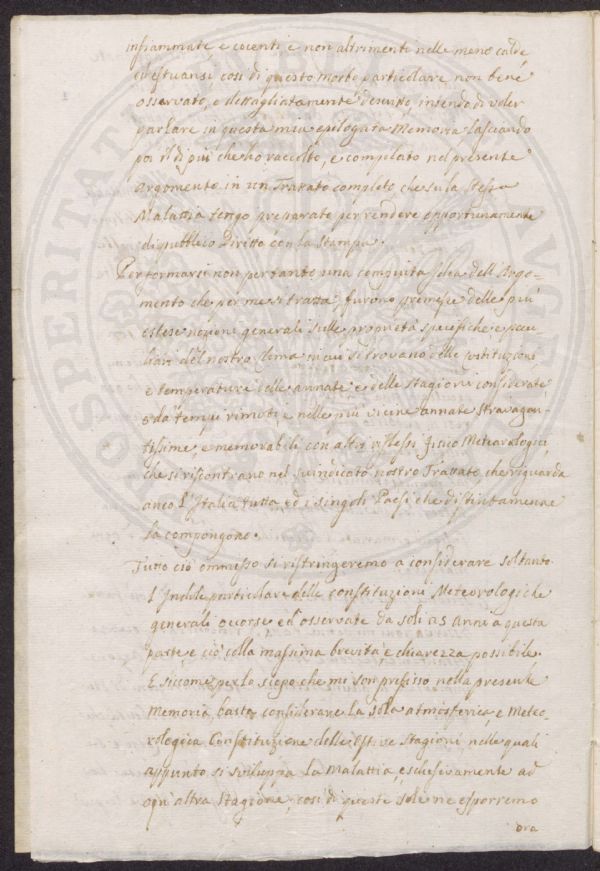 infiammate e cocenti, e non altrimenti nelle meno calde
ed estuansi, così di questo morbo particolare non bene
osservato, e dettagliatamente descritto, intendo di voler
parlare in questa mia epilogata Memoria lasciando
poi il di più che ho raccolto, e compilato nel presente
argomento in un Trattato completo che su la stessa
Malattia tengo preparato per rendere opportunamente
di pubblico Diritto con la Stampa.
Per formarsi non pertanto una compiuta idea dell'Argo-
mento che per me si tratta, furono premesse delle più
estese nozioni generali sulle proprietà specifiche e pecu
liari del nostro clima in cui si trovano delle costituzioni
e temperature delle annate e delle Stagioni considerate
da tempi rimoti, e nelle più vicine annate Stravagan-
tissime, e memorabili con altri riflessi Fisico Meteorologici
che si riscontrano nel suindicato nostro Trattato, che riguarda
anco l'Italia tutta, ed i singoli Paesi che distintamente
la compongono.
Tutto ciò ommisso si ristringeremo a considerare soltanto
l'Indole particolare delle constituzioni Meteorologiche
generali occorse ed osservate da soli 25 anni a questa
parte e ciò colla massima brevità e chiarezza possibile.
E siccome per lo scopo che mi son prefisso nella presente
Memoria, basta considerare la sola atmosferica e Meteo-
rologica Constituzione delle Estive Stagioni nelle quali
appunto si sviluppa la Malattia esclusivamente ad
ogn'altra Stagione, così di queste sole ne esporremo
ora
PROSPERITATI PUBLICAE AUGENDAE